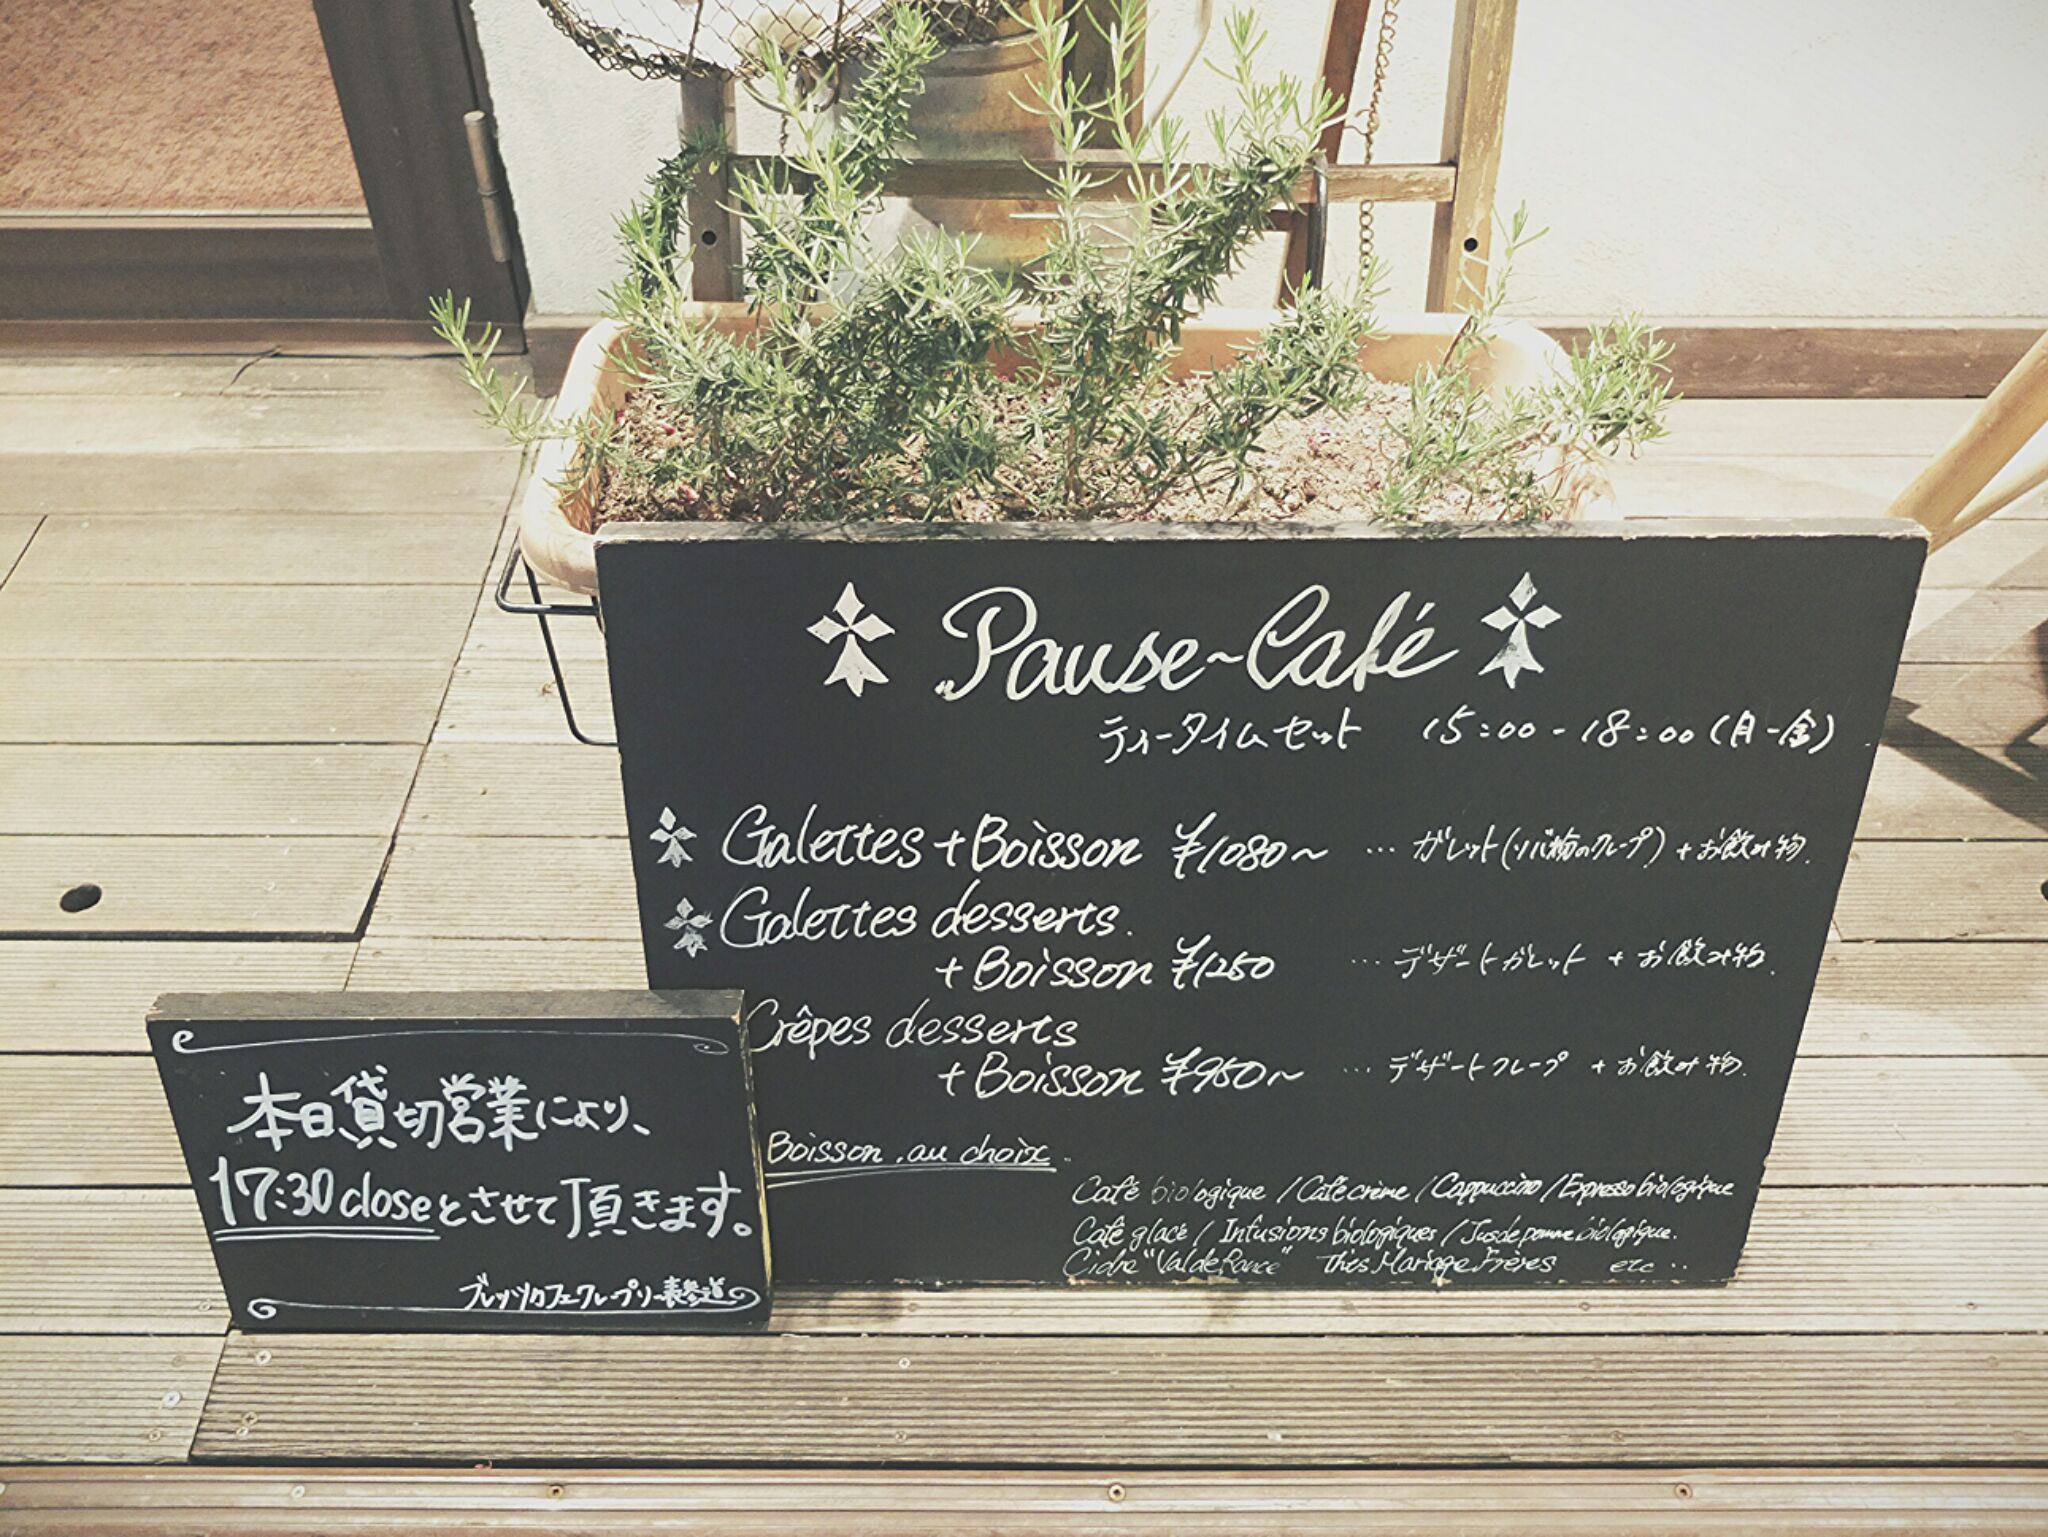 Pause~Café
ティータイムセット 15:00-18:00(月-金)
Galettes + Boisson ¥1080~ … ガレット(ソバ粉のクレープ) + お飲み物.
Galettes desserts.
+ Boisson ¥1250 … デザートガレット + お飲み物.
Crêpes desserts
+ Boisson ¥950~ … デザートクレープ + お飲み物.
Boisson au choix.
Café biologique / Café crème / Cappuccino / Expresso biologique
Café glacé / Infusions biologiques / Jus de pomme biologique.
Cidre "Val de Rance" Thés Mariage Frères etc..
本日貸切営業により、
17:30closeとさせて頂きます。
ブレッツカフェクレープリー表参道